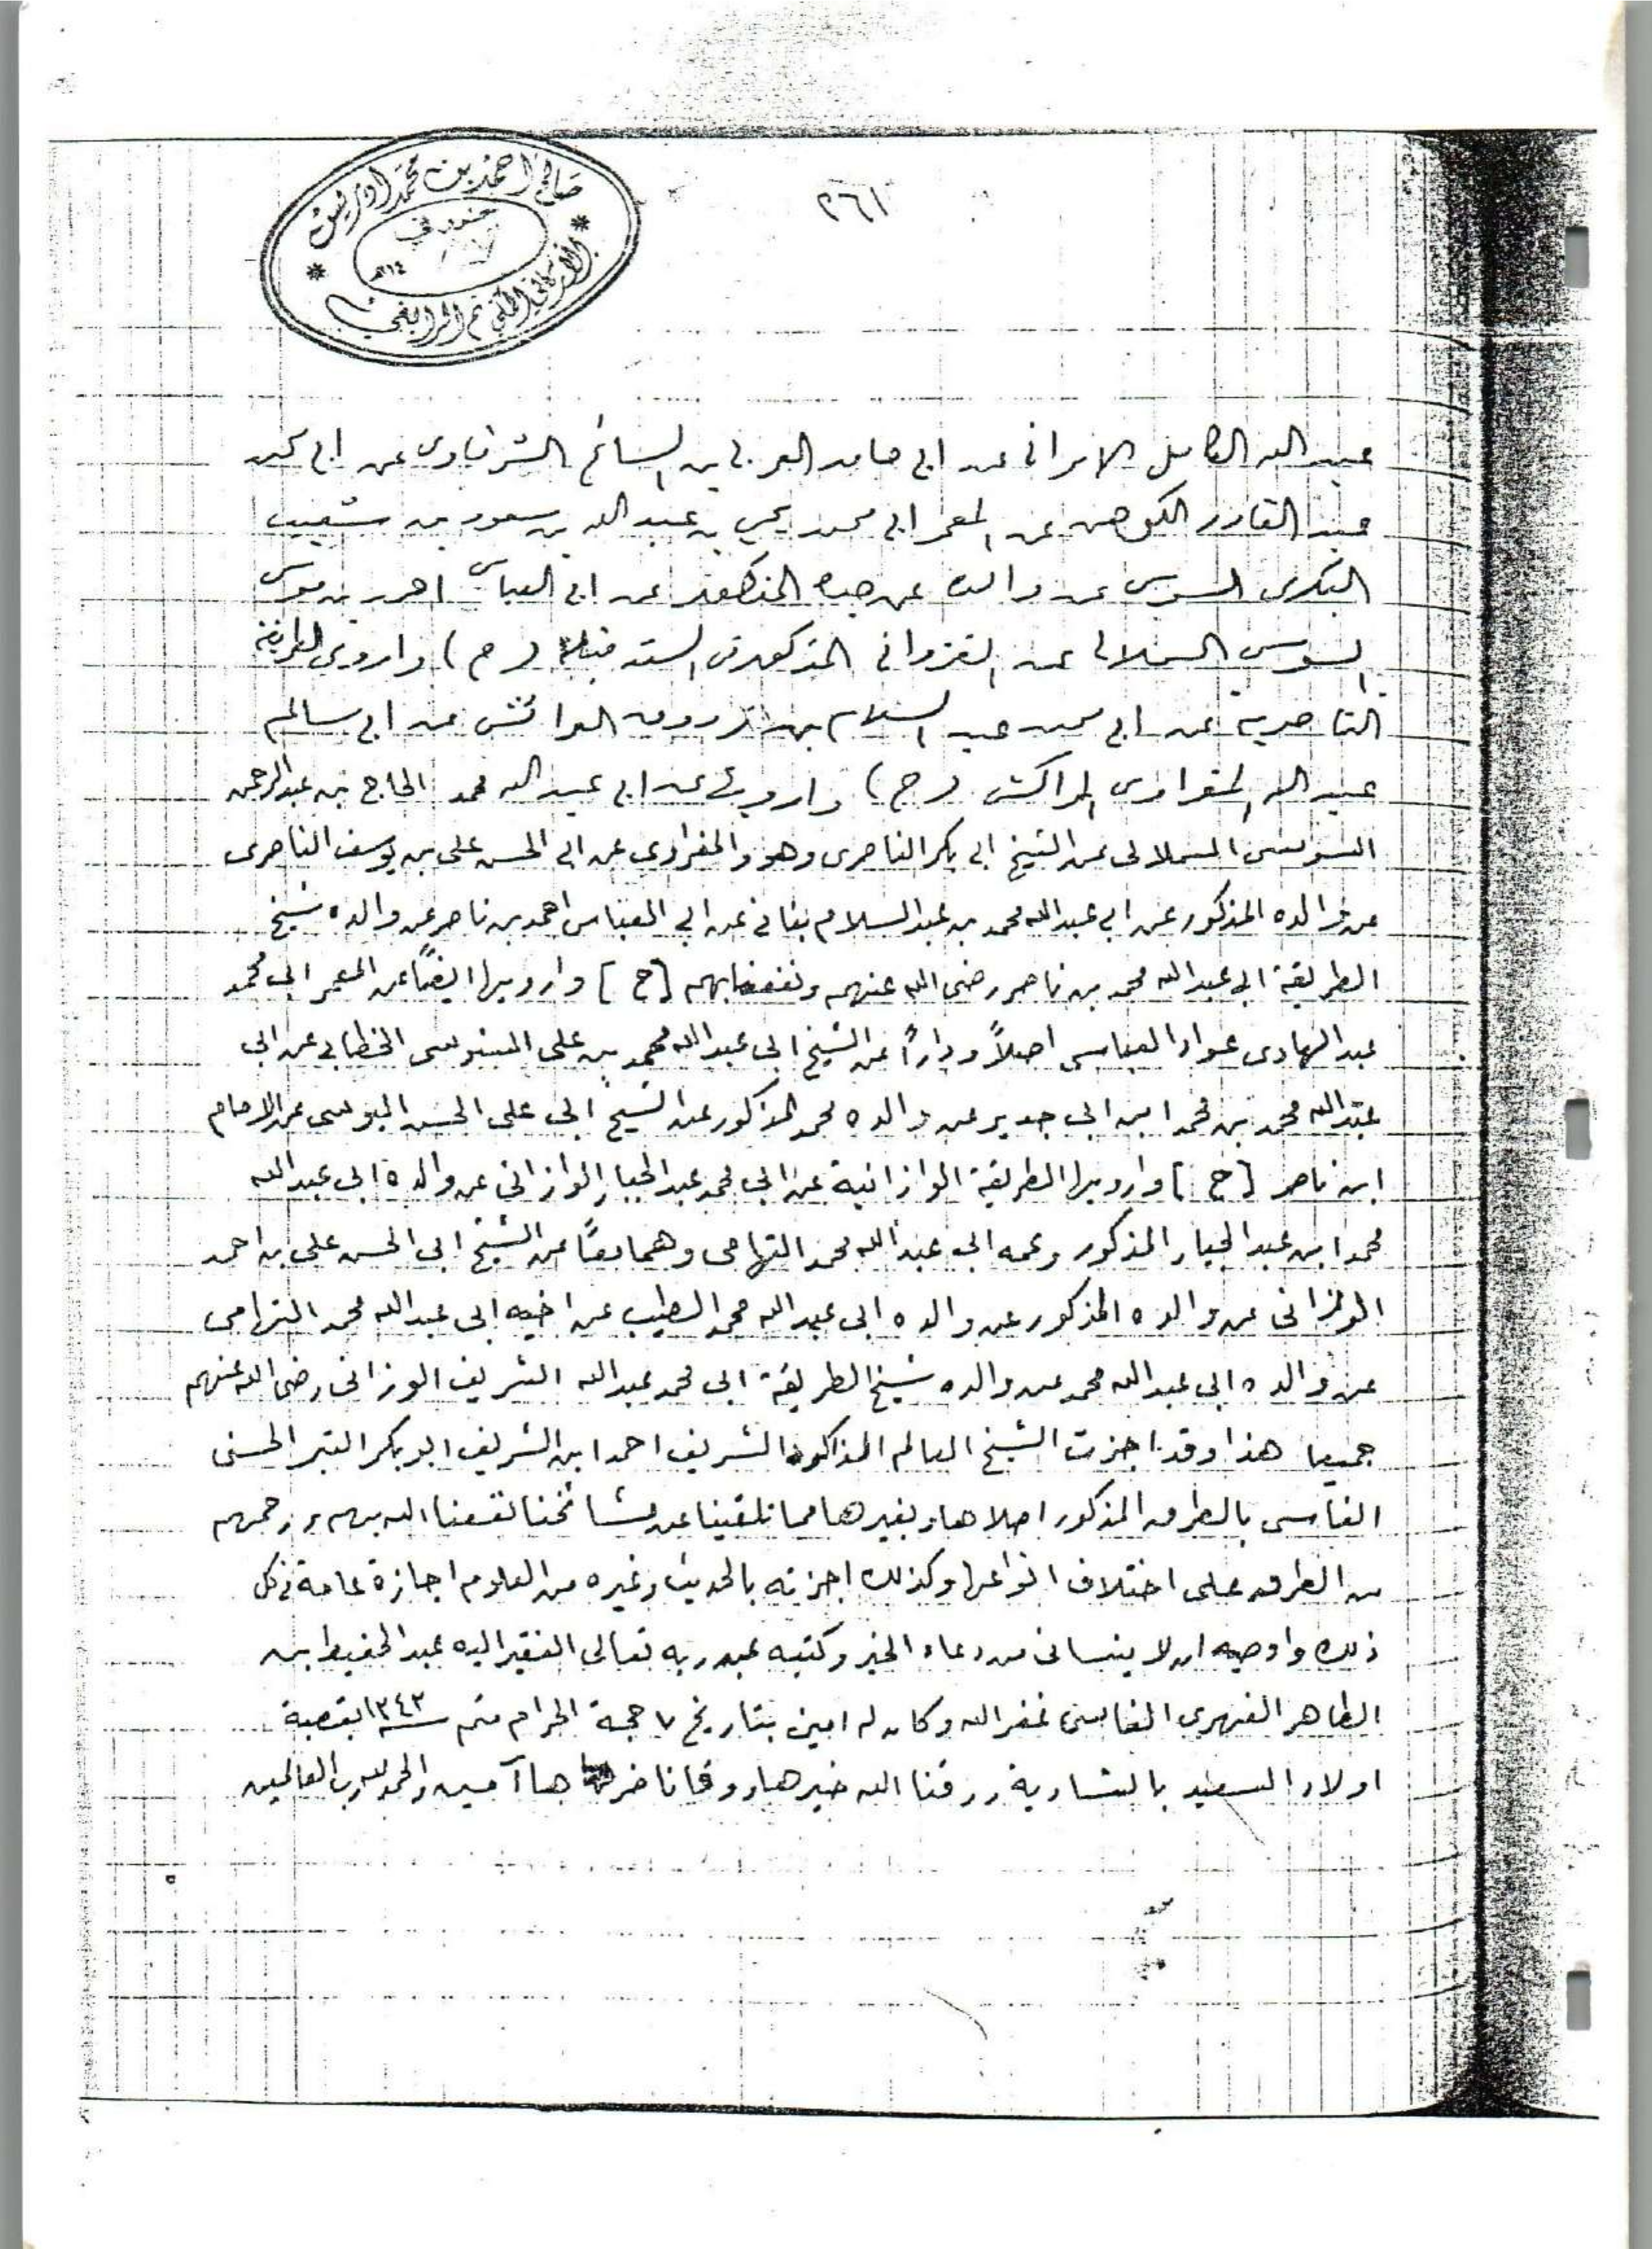 ٢٦١
صالح احمد بن محمد ادريس
الاركاني المكي ثم الرابغي
عبد الله الكامل الامراني عن ابي حامد العربي بن السائح الشرقاوى عن ابى محمد
عبد القادر الكوهن عن المعمر ابى محمد يحي بن عبد الله بن سعود بن شعيب
البكرى السوسى عن والده عن جده المذكور عن ابى العباس احمد بن موسى
السوسى السملالى عن الغزوانى المذكور فى السند قبله (ح) واروى الطريقة
الناصرية عن ابى محمد عبد السلام بن عن ابى سالم
عبد الله المراكشى (ح) وارويها عن ابى عبد الله محمد الحاج بن عبد الرحمن
السوسى السملالى عن الشيخ ابى بكر الناصرى وهو والمغراوى عن ابى الحسن على بن يوسف الناصرى
عن والده المذكور عن ابى عبد الله محمد بن عبد السلام بنانى عن ابى العباس احمد بن ناصر عن والده شيخ
الطريقة ابى عبد الله محمد بن ناصر رضى الله عنهم ونفعنا بهم [ح] وارويها ايضًا عن المعمر ابى محمد
عبد الهادى عواد العباسى اصلاً ودارًا عن الشيخ ابى عبد الله محمد بن على السنوسى الخطابى عن ابى
عبد الله محمد بن محمد ابن ابى جدير عن والده محمد المذكور عن الشيخ ابى على الحسن اليوسى عن الامام
ابن ناصر [ح] وارويها الطريقة الوازانية عن ابى محمد عبد الجبار الوازانى عن والده ابى عبد الله
محمد ابن عبد الجبار المذكور وعمه ابى عبد الله محمد التهامى وهما معًا عن الشيخ ابى الحسن على بن احمد
الوازانى عن والده المذكور عن والده ابى عبد الله محمد الطيب عن اخيه ابى عبد الله محمد التهامى
عن والده ابى عبد الله محمد عن والده شيخ الطريقة ابى محمد عبد الله الشريف الوزانى رضى الله عنهم
جميعا هذا وقد اجزت الشيخ العالم المذاكره الشريف احمد ابن الشريف ابو بكر القبر الحسنى
الفاسى بالطرق المذكور اصلاها وبغيرها مما تلقينا عن مشائخنا نفعنا الله بهم ورحمهم
من الطرق على اختلاف انواعها وكذلك اجزته بالحديث وغيره من العلوم اجازة عامة فى كل
ذلك واوصيه ان لا ينسانى من دعاء الخير وكتبه عبد ربه تعالى الفقير اليه عبد الحفيظ ابن
الطاهر الفهرى الفاسى غفر الله وكان له امين بتاريخ ٧ حجة الحرام متم سنة ١٣٤٣ بقصبة
اولاد السعيد بالشاوية رزقنا الله خيرها ووقانا ضرها آمين والحمد لله رب العالمين